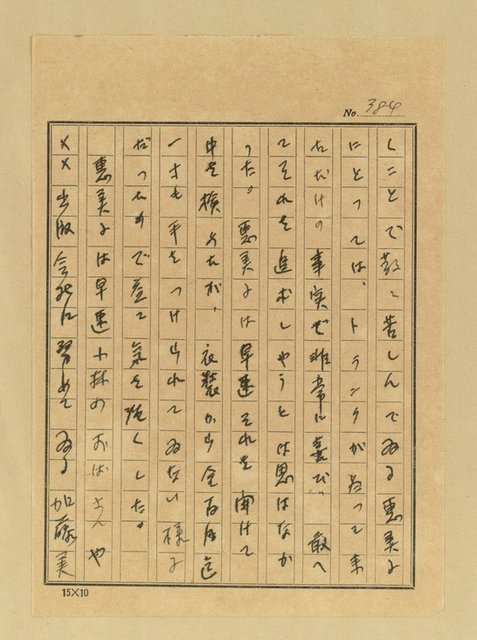 No. 384
しことで散々苦しんでゐる惠美子
にとつては、トランクが返つて来
ただけの事実で非常に喜び、敢へ
てそれを追求しやうとは思はなか
つた。惠美子は早速それを開けて
中を検めたが、衣裳から全部迄
一さも手をつけられてゐない様子
だつたので益々気を好くした。
惠美子は早速小林のおばさんや
××出版会社に習めてゐる加藤美
15×10